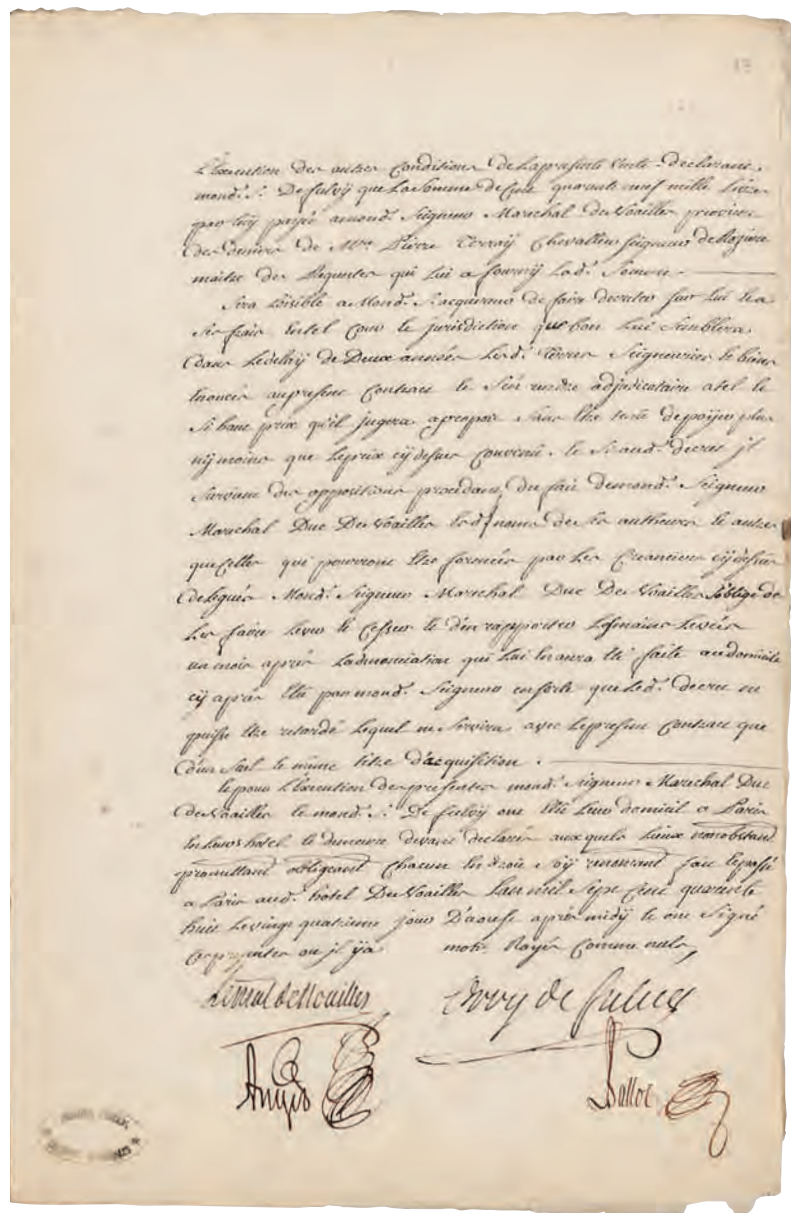 L'Execution des autres Conditions de la presente Vente. declarant
mond. S. De fulvy que La Somme de Cent quarante neuf mille Livres
par luy payée a mond. Seigneur Marechal de Noailles provient
des deniers de Mre Pierre Terray Chevallier Seigneur de Roziere
maitre des Requestes qui Lui a fourny Lad. Somme.
Sera Loisible a Mond. S. acquereur de faire decreter sur Lui & a
Ses frais En tel Cour & jurisdiction que bon Lui Semblera
Dans Le delay de Deux années Lesd. Terres Seigneuries & biens
Enoncés au present Contract & S'en rendre adjudicataire a tel &
Si haut prix qu'il jugera apropos Sans Etre tenu de payer plus
ny moins que Le prix cy dessus Convenu. & Si aud. decret jl
Survient des oppositions procedant du fait de mond. Seigneur
Marechal Duc De Noailles de Ses autheurs & autres
que Celles qui pourront Etre formées par Les Creanciers cy dessus
delegués Mond. Seigneur Marechal Duc De Noailles S'oblige de
Les faire Lever & Cesser & d'en rapporter Les mains Levées
un mois après La denonciation qui Lui En aura Eté faite au domicile
cy après Elu par mond. Seigneur En sorte que Led. decret ne
puisse Etre retardé Lequel ne Servira avec Le present Contract que
d'un Seul & même titre d'acquisition.
& pour L'Execution des presentes mond. Seigneur Marechal Duc
de Noailles & mond. S. De fulvy ont Elu Leur domicil a Paris
En Leurs hotel & demeure devant declarés auxquels Lieux nonobstant
promettant obligeant Chacun En droit Soy renonçant fait & passé
a Paris aud. hotel De Noailles L'an mil Sept Cent quarante
huit Le vingt quatrieme jour D'aoust après midy & ont Signé
Ces presentes ou jl y a mots Rayés Comme nuls
Le Mal de Noailles Orry de Fulvy